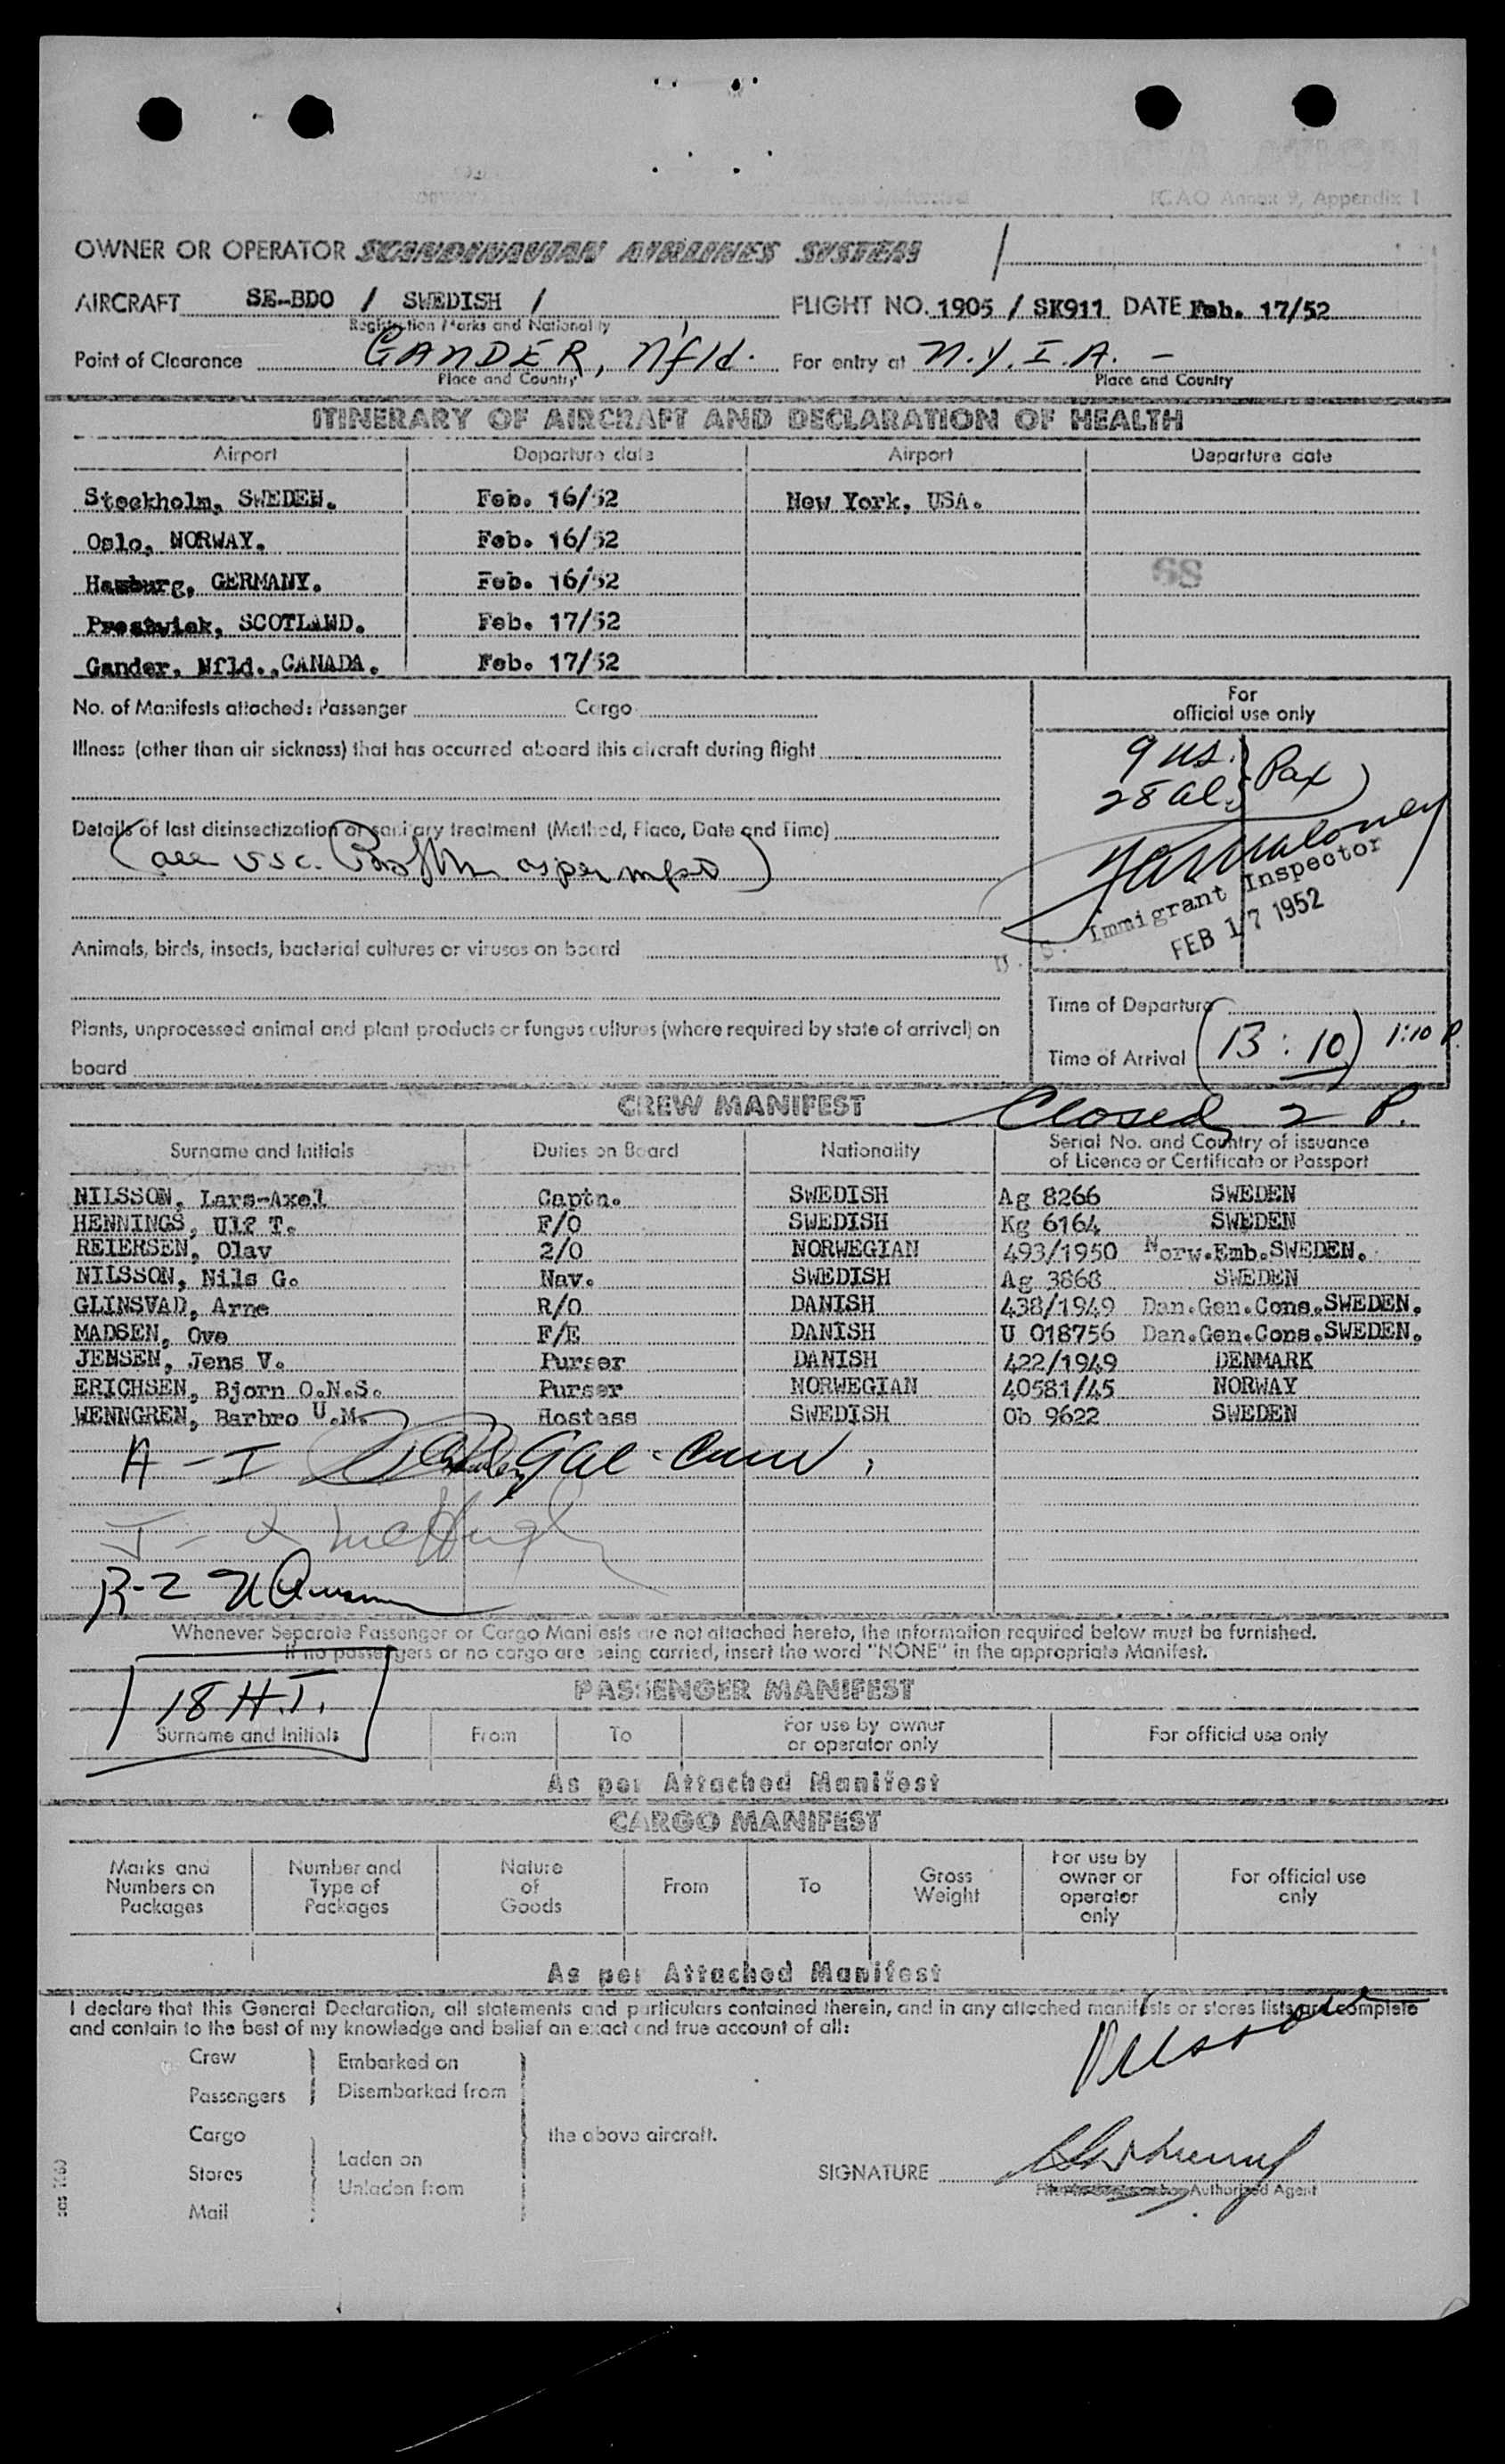 ICAO Annex 9, Appendix 1
OWNER OR OPERATOR SCANDINAVIAN AIRLINES SYSTEM
AIRCRAFT SE-BDO / SWEDISH / FLIGHT NO. 1905 / SK911 DATE Feb. 17/52
Registration Marks and Nationality
Point of Clearance GANDER, Nfld. For entry at N.Y.I.A. -
Place and Country Place and Country
ITINERARY OF AIRCRAFT AND DECLARATION OF HEALTH
Airport Departure date Airport Departure date
Stockholm, SWEDEN. Feb. 16/52 New York, USA.
Oslo, NORWAY. Feb. 16/52
Hamburg, GERMANY. Feb. 16/52
68
Prestwick, SCOTLAND. Feb. 17/52
Gander, Nfld., CANADA. Feb. 17/52
No. of Manifests attached: Passenger Cargo
For
official use only
Illness (other than air sickness) that has occurred aboard this aircraft during flight
9 US. Pax
28 al.
Details of last disinsectization or sanitary treatment (Method, Place, Date and Time)
(all USC. as per mfst)
Maloney
U. S. Immigrant Inspector
FEB 17 1952
Animals, birds, insects, bacterial cultures or viruses on board
Time of Departure
Plants, unprocessed animal and plant products or fungus cultures (where required by state of arrival) on
board
Time of Arrival (13:10) 1:10 P.
CREW MANIFEST Closed 2 P.
Surname and Initials Duties on Board Nationality Serial No. and Country of issuance
of Licence or Certificate or Passport
NILSSON, Lars-Axel Captn. SWEDISH Ag 8266 SWEDEN
HENNINGS, Ulf T. F/O SWEDISH Kg 6164 SWEDEN
REIERSEN, Olav 2/O NORWEGIAN 493/1950 Norw.Emb.SWEDEN.
NILSSON, Nils G. Nav. SWEDISH Ag 3868 SWEDEN
GLINSVAD, Arne R/O DANISH 438/1949 Dan.Gen.Cons.SWEDEN.
MADSEN, Ove F/E DANISH U 018756 Dan.Gen.Cons.SWEDEN.
JENSEN, Jens V. Purser DANISH 422/1949 DENMARK
ERICHSEN, Bjorn O.N.S. Purser NORWEGIAN 40581/45 NORWAY
WENNGREN, Barbro U.M. Hostess SWEDISH Ob 9622 SWEDEN
A - I 9 al - Crew
McHugh
R-2
Whenever Separate Passenger or Cargo Manifests are not attached hereto, the information required below must be furnished.
If no passengers or no cargo are being carried, insert the word "NONE" in the appropriate Manifest.
PASSENGER MANIFEST
18 H.T.
Surname and Initials From To For use by owner
or operator only For official use only
As per Attached Manifest
CARGO MANIFEST
Marks and
Numbers on
Packages Number and
Type of
Packages Nature
of
Goods From To Gross
Weight For use by
owner or
operator
only For official use
only
As per Attached Manifest
I declare that this General Declaration, all statements and particulars contained therein, and in any attached manifests or stores lists are complete
and contain to the best of my knowledge and belief an exact and true account of all:
Nilsson
Crew Embarked on
Passengers Disembarked from
Cargo the above aircraft.
Laden on
Stores
SIGNATURE
Unladen from
Authorized Agent
Mail